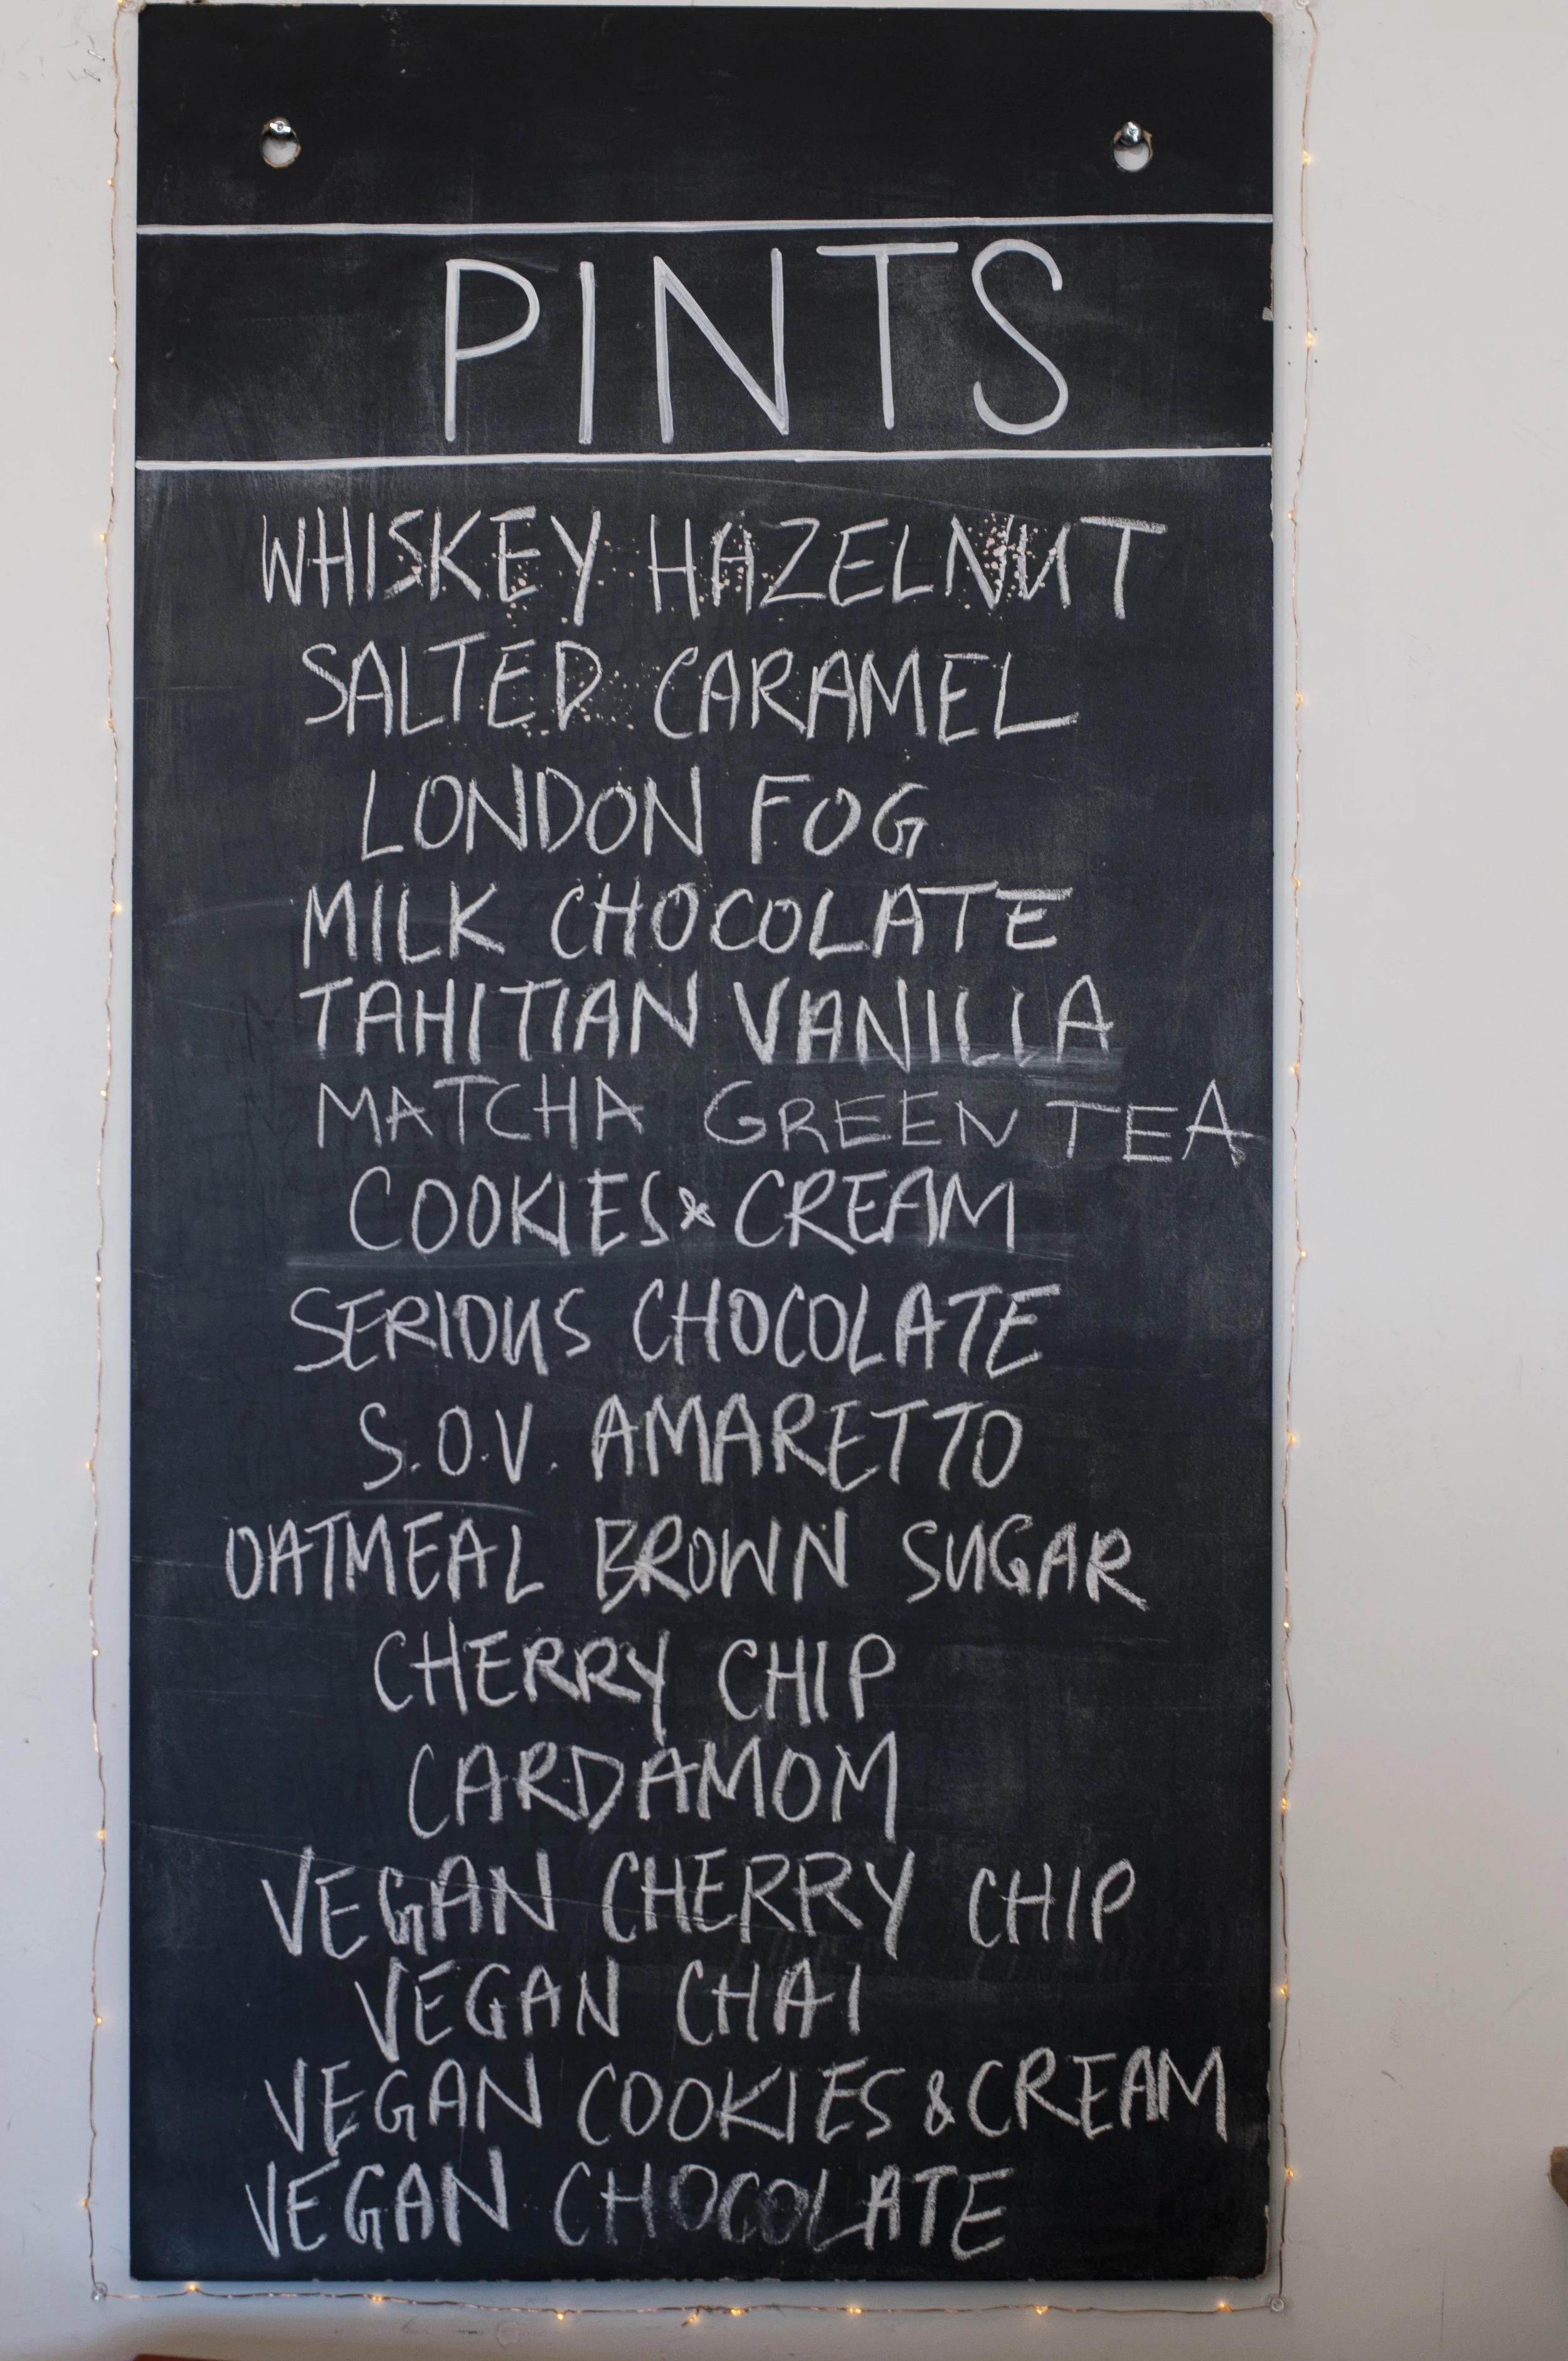 PINTS
WHISKEY HAZELNUT
SALTED CARAMEL
LONDON FOG
MILK CHOCOLATE
TAHITIAN VANILLA
MATCHA GREEN TEA
COOKIES & CREAM
SERIOUS CHOCOLATE
S.O.V. AMARETTO
OATMEAL BROWN SUGAR
CHERRY CHIP
CARDAMOM
VEGAN CHERRY CHIP
VEGAN CHAI
VEGAN COOKIES & CREAM
VEGAN CHOCOLATE